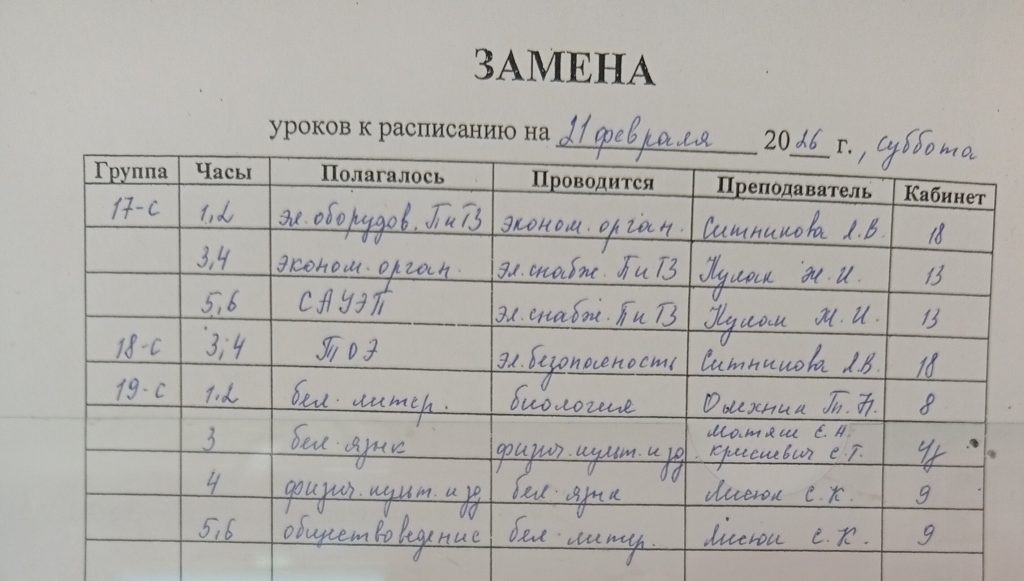 ЗАМЕНА
уроков к расписанию на 21 февраля 2026 г., суббота
Группа Часы Полагалось Проводится Преподаватель Кабинет
17-с 1,2 эл. оборудов. ПиТЗ эконом. орган. Ситникова Л.В. 18
3,4 эконом. орган. эл. снабж. ПиТЗ Кулак Ж.И. 13
5,6 САУЭП эл. снабж. ПиТЗ Кулак Ж.И. 13
18-с 3,4 ТОЭ эл. безопасность Ситникова Л.В. 18
19-с 1.2 бел. литер. биология 8
3 бел. язык физич. культ. и зд Матяш Е.Н.
Крисевич С.Т.
4 физич. культ. и зд бел. язык Лисюк С.К. 9
5,6 обществоведение бел. литер. Лисюк С.К. 9